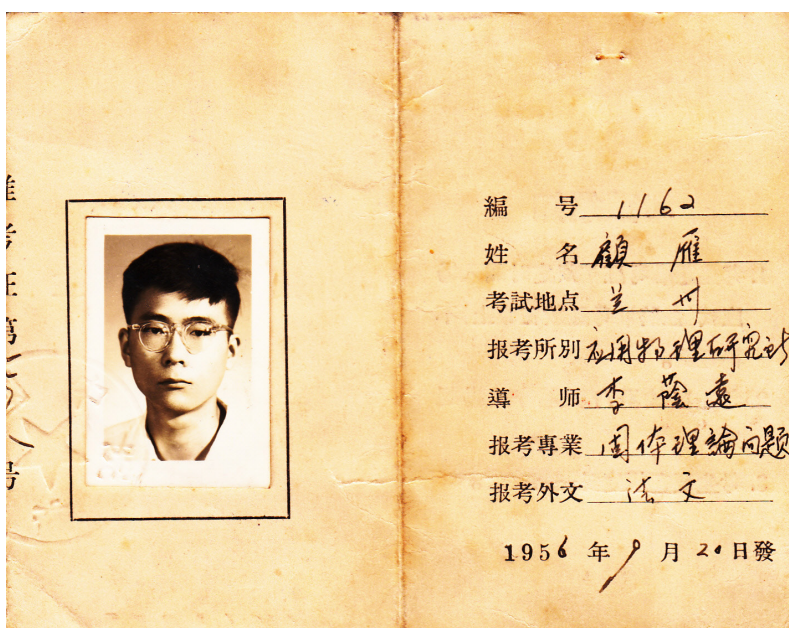 准考证第
号
編号 1162
姓名 顧雁
考試地点 兰州
报考所別 应用物理研究所
導师 李蔭遠
报考專業 固体理論问题
报考外文 法文
1956年9月20日發